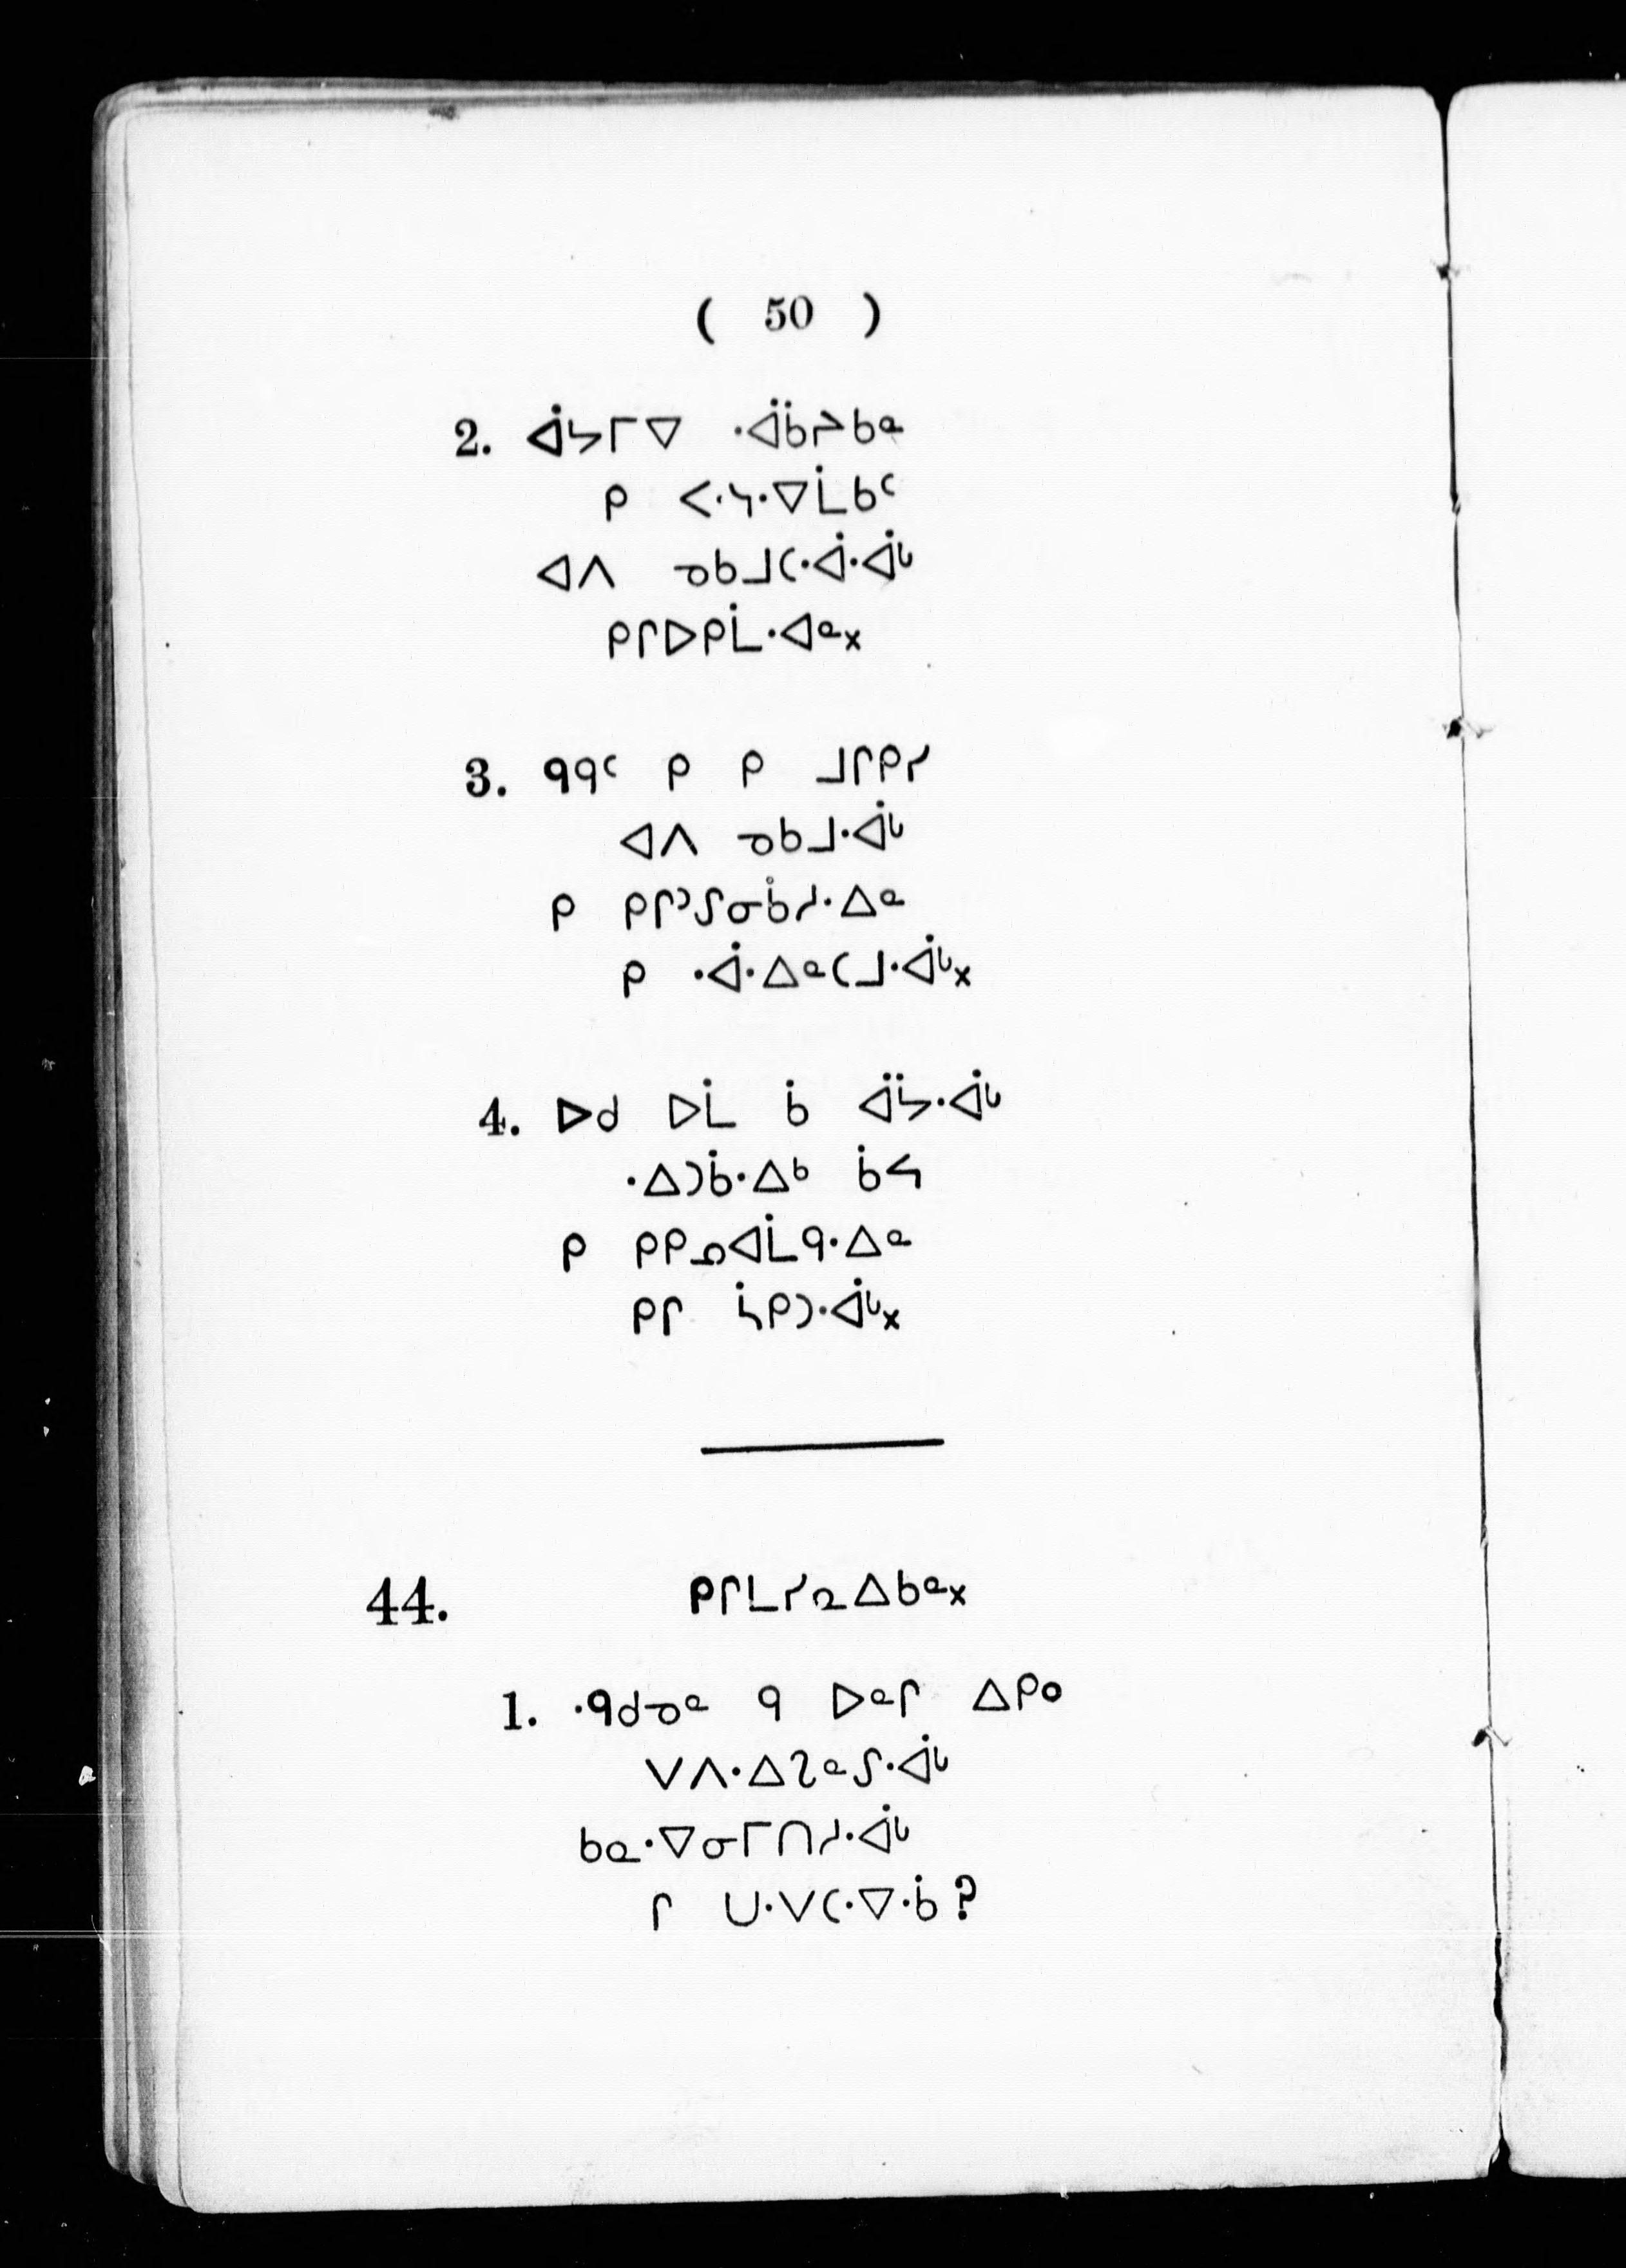 ( 50 )
2. ᐋᔭᒥᐁ ᐛᑳᔨᐣᑲᓐ
ᑭ ᐸᐧᓴᐧᐁᒫᑲᑦ
ᐊᐱ ᓀᑲᒧᑕᐧᐋᐧᐋᒡ
ᑭᒋᐅᑭᒫᐧᐊᓐ᙮
3. ᑫᑫᑦ ᑭ ᑭ ᒧᒋᑭᓯ
ᐊᐱ ᓀᑲᒧᐧᐋᒡ
ᑭ ᑭᒋᐟᔑᓂᑳᓱᐧᐃᓐ
ᑭ ᐧᐋᐧᐃᓐᑕᒧᐧᐋᒡ᙮
4. ᐅᑯ ᐅᒫ ᑳ ᐋᔭᐧᐋᒡ
ᐧᐃᑐᑳᐧᐃᒃ ᑳᔦ
ᑭ ᑭᑭᓄᐊᒫᑫᐧᐃᓐ
ᑭᒋ ᓵᑭᑐᐧᐋᒡ᙮
44. ᑭᒋᒪᓯᓇᐃᑲᓐ᙮
1. ᐧᑫᑯᓀᓐ ᑫ ᐅᓐᒋ ᐃᑭᐤ
ᐯᐱᐧᐃᔐᓐᔑᐧᐋᒡ
ᑲᓇᐧᐁᓂᒥᑎᓱᐧᐋᒡ
ᒋ ᑌᐧᐯᑕᐧᐁᐧᑳ?